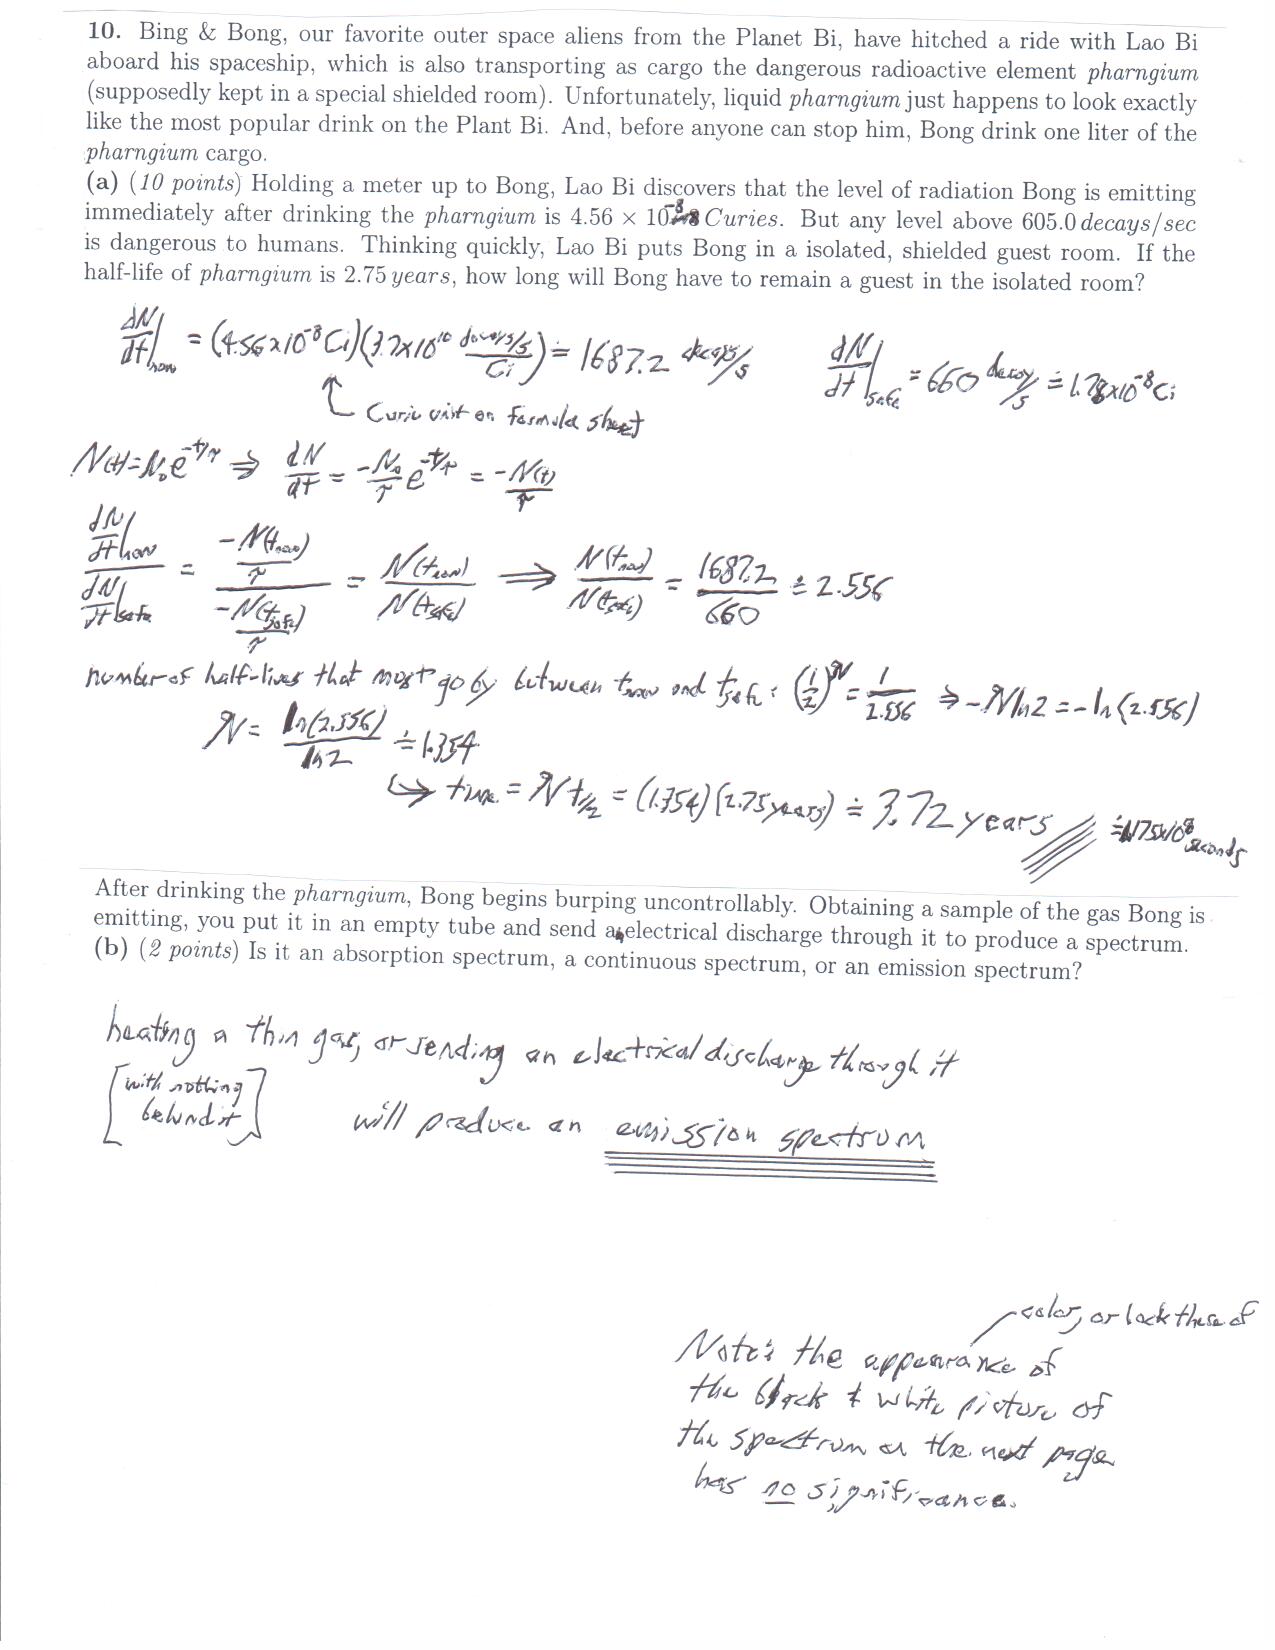 10. Bing & Bong, our favorite outer space aliens from the Planet Bi, have hitched a ride with Lao Bi
aboard his spaceship, which is also transporting as cargo the dangerous radioactive element pharngium
(supposedly kept in a special shielded room). Unfortunately, liquid pharngium just happens to look exactly
like the most popular drink on the Plant Bi. And, before anyone can stop him, Bong drink one liter of the
pharngium cargo.
(a) (10 points) Holding a meter up to Bong, Lao Bi discovers that the level of radiation Bong is emitting
immediately after drinking the pharngium is 4.56 × 10⁻⁸ Curies. But any level above 605.0 decays/sec
is dangerous to humans. Thinking quickly, Lao Bi puts Bong in a isolated, shielded guest room. If the
half-life of pharngium is 2.75 years, how long will Bong have to remain a guest in the isolated room?
dN/dt|now = (4.56x10⁻⁸ Ci)(3.7x10¹⁰ decays/s/Ci) ≐ 1687.2 decays/s dN/dt|safe = 660 decay/s ≐ 1.78x10⁻⁸ Ci
Curie unit on formula sheet
N(t)=N₀e^(-t/τ) ⇒ dN/dt = -N₀/τ e^(-t/τ) = -N(t)/τ
dN/dt|now / dN/dt|safe = (-N(tnow)/τ) / (-N(tsafe)/τ) = N(tnow)/N(tsafe) ⟹ N(tnow)/N(tsafe) = 1687.2/660 ≐ 2.556
number of half-lives that must go by between tnow and tsafe: (1/2)^N = 1/2.556 ⇒ -N ln2 = -ln(2.556)
N = ln(2.556)/ln2 ≐ 1.354
↪ time = N t1/2 = (1.354)(2.75 years) ≐ 3.72 years ≐ 1.175x10⁸ seconds
After drinking the pharngium, Bong begins burping uncontrollably. Obtaining a sample of the gas Bong is
emitting, you put it in an empty tube and send an electrical discharge through it to produce a spectrum.
(b) (2 points) Is it an absorption spectrum, a continuous spectrum, or an emission spectrum?
heating a thin gas, or sending an electrical discharge through it
[with nothing
behind it]
will produce an emission spectrum
color, or lack there of
Note: the appearance of
the black & white picture of
the spectrum on the next page
has no significance.